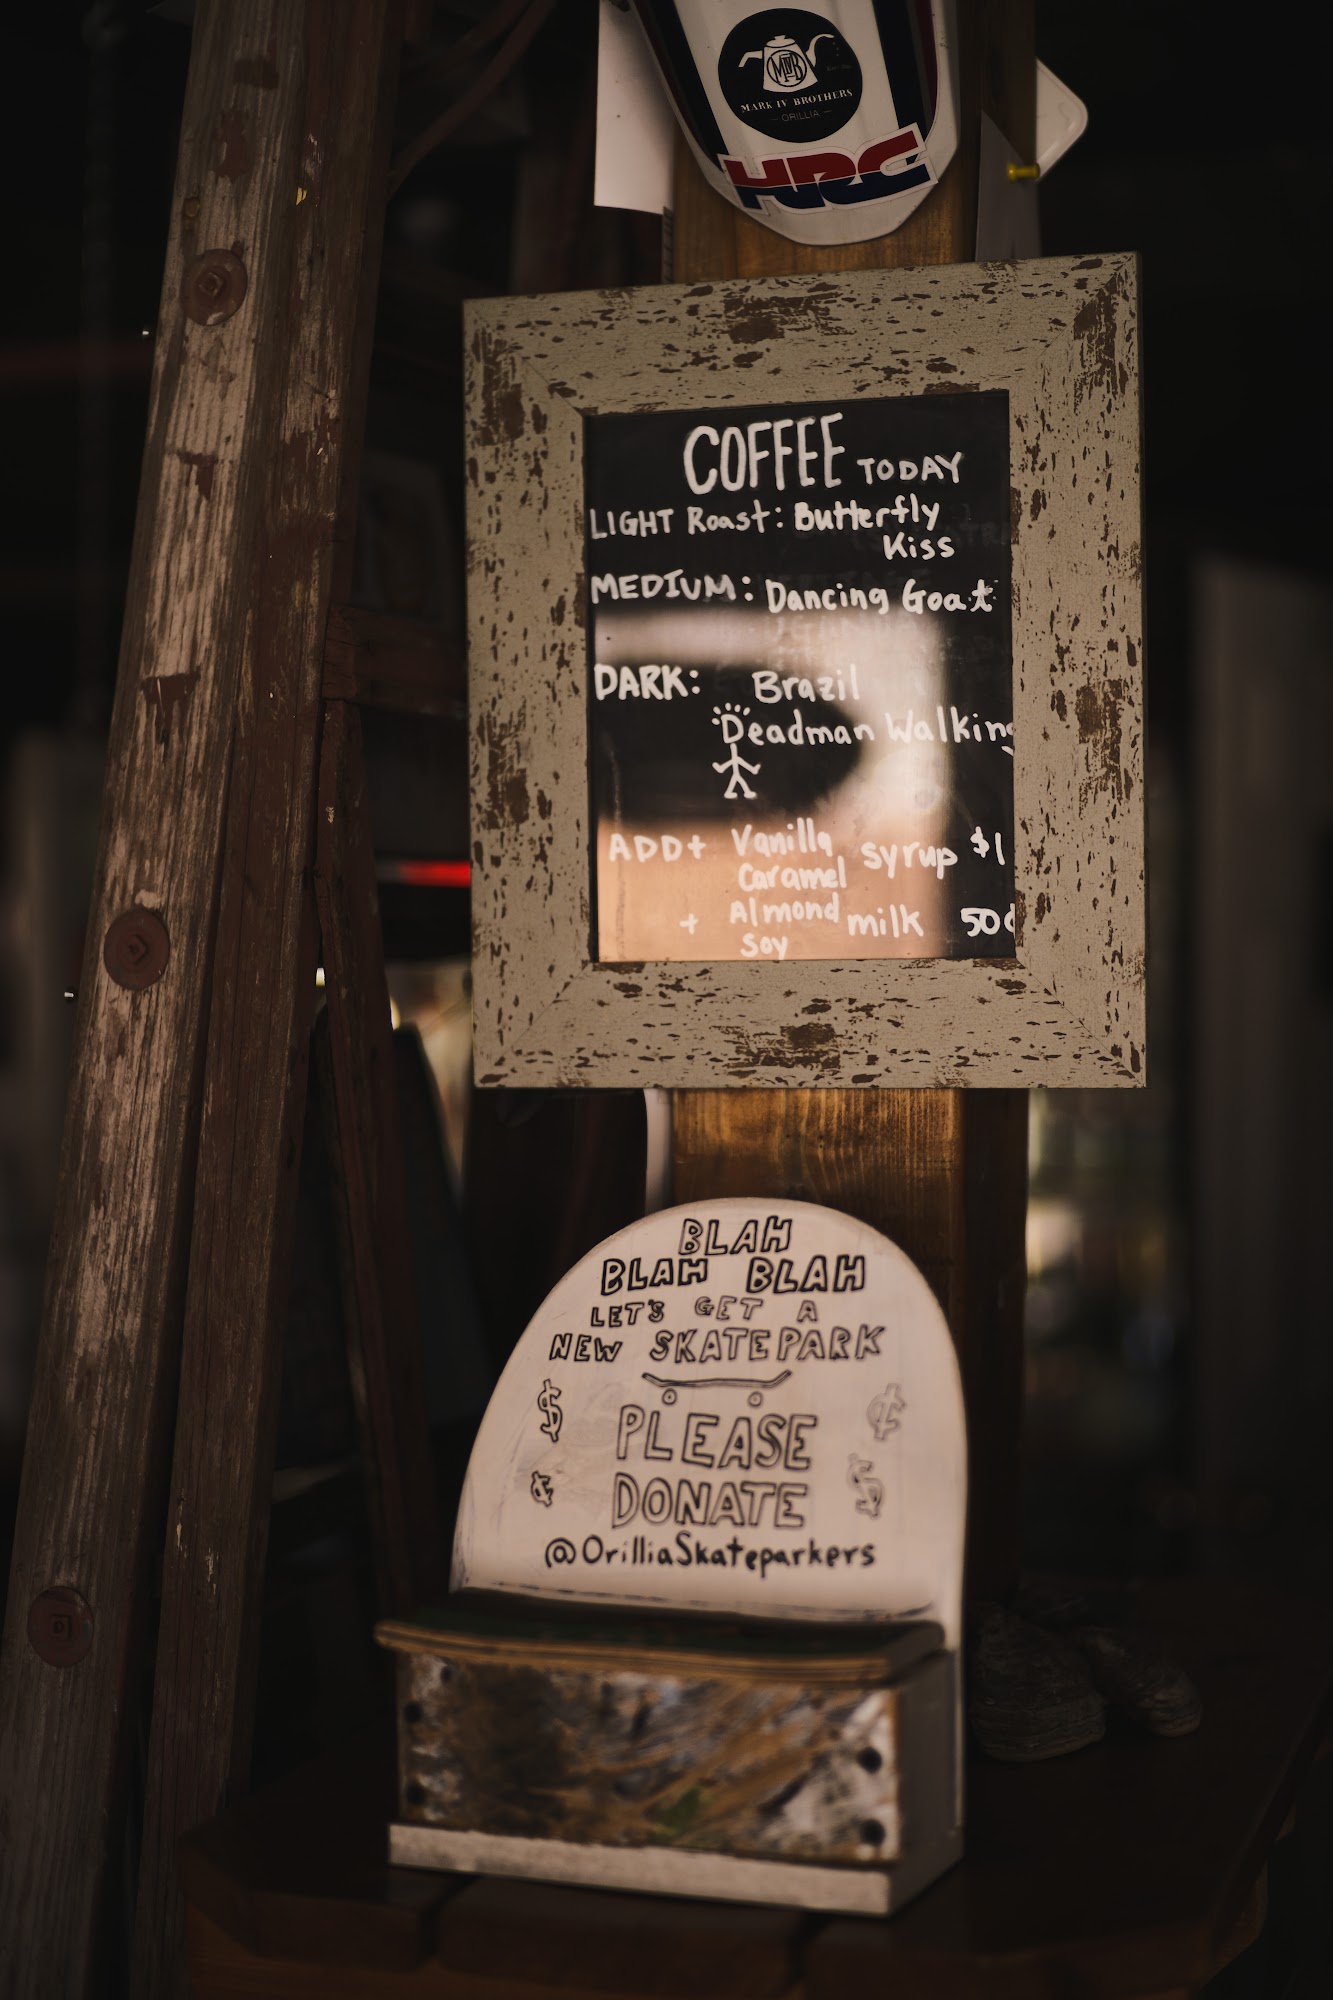 MDB
MARK IV BROTHERS
— ORILLIA —
HRC
COFFEE TODAY
LIGHT Roast: Butterfly
Kiss
MEDIUM: Dancing Goat
DARK: Brazil
Deadman Walking
ADD+ Vanilla syrup $1
Caramel
+ Almond milk 50¢
Soy
BLAH
BLAH BLAH
LET'S GET A
NEW SKATEPARK
$ PLEASE ¢
¢ DONATE $
@OrilliaSkateparkers